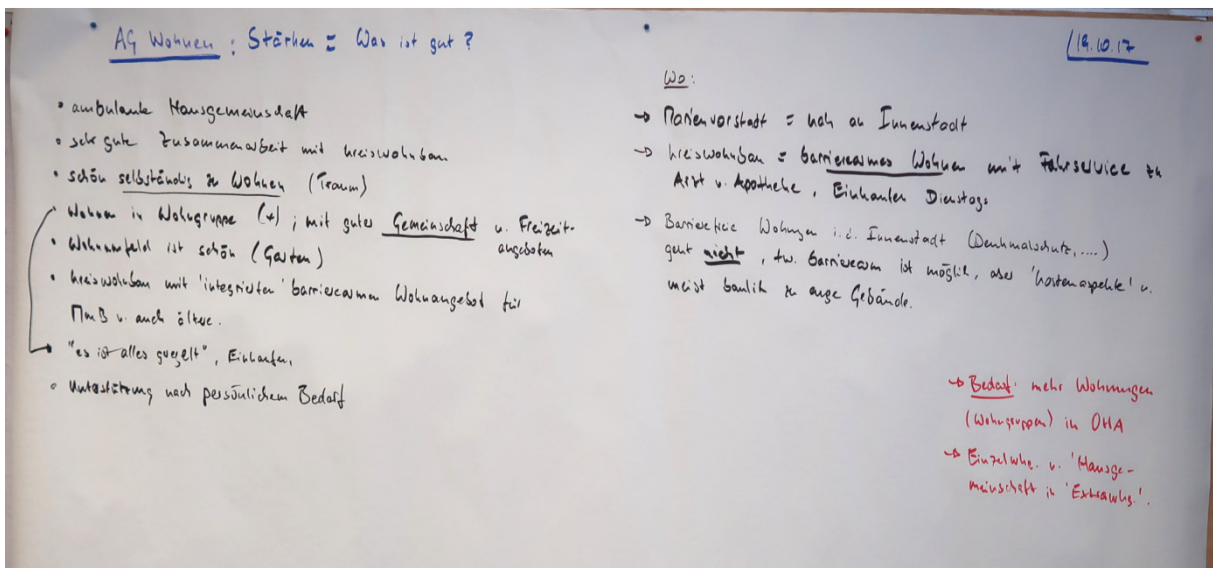 AG Wohnen : Stärken = Was ist gut ?
• ambulante Hausgemeinschaft
• sehr gute Zusammenarbeit mit Kreiswohnbau
• schön selbständig zu Wohnen (Traum)
• Wohnen in Wohngruppe (+) ; mit guter Gemeinschaft u. Freizeit-
angeboten
• Wohnumfeld ist schön (Garten)
• Kreiswohnbau mit 'integrierten' barrierearmen Wohnangebot für
MmB u. auch ältere.
• "es ist alles geregelt", Einkaufen,
• Unterstützung nach persönlichem Bedarf
19.10.17
Wo:
→ Marienvorstadt = nah an Innenstadt
→ Kreiswohnbau = barrierearmes Wohnen mit Fahrservice zu
Arzt u. Apotheke, Einkaufen Dienstags
→ Barrierefreie Wohngen i.d. Innenstadt (Denkmalschutz,....)
geht nicht, tw. barrierearm ist möglich, aber 'Kostenaspekte' u.
meist baulich zu enge Gebäude.
→ Bedarf: mehr Wohnungen
(Wohngruppen) in OHA
→ Einzelwhg. u. 'Hausge-
meinschaft in 'Extrawhg.'.